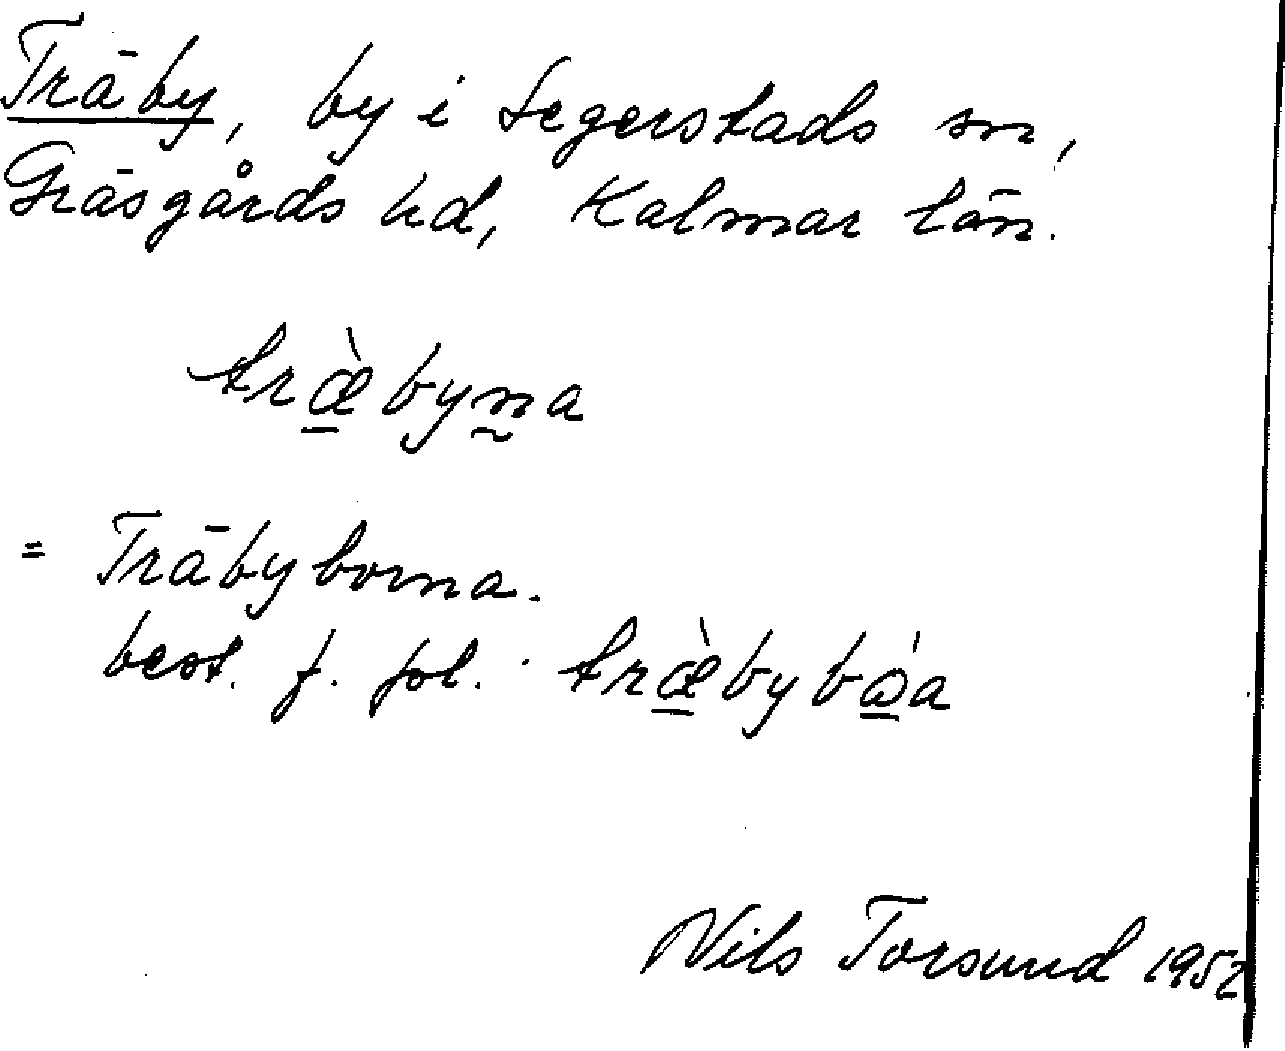 Träby, by i Segerstads sn,
Gräsgårds hd, Kalmar län.
træ̠̀byn̰a
= Träbyborna.
best. f. pl. træ̠̀bybώ̠a
Nils Torsund 1952